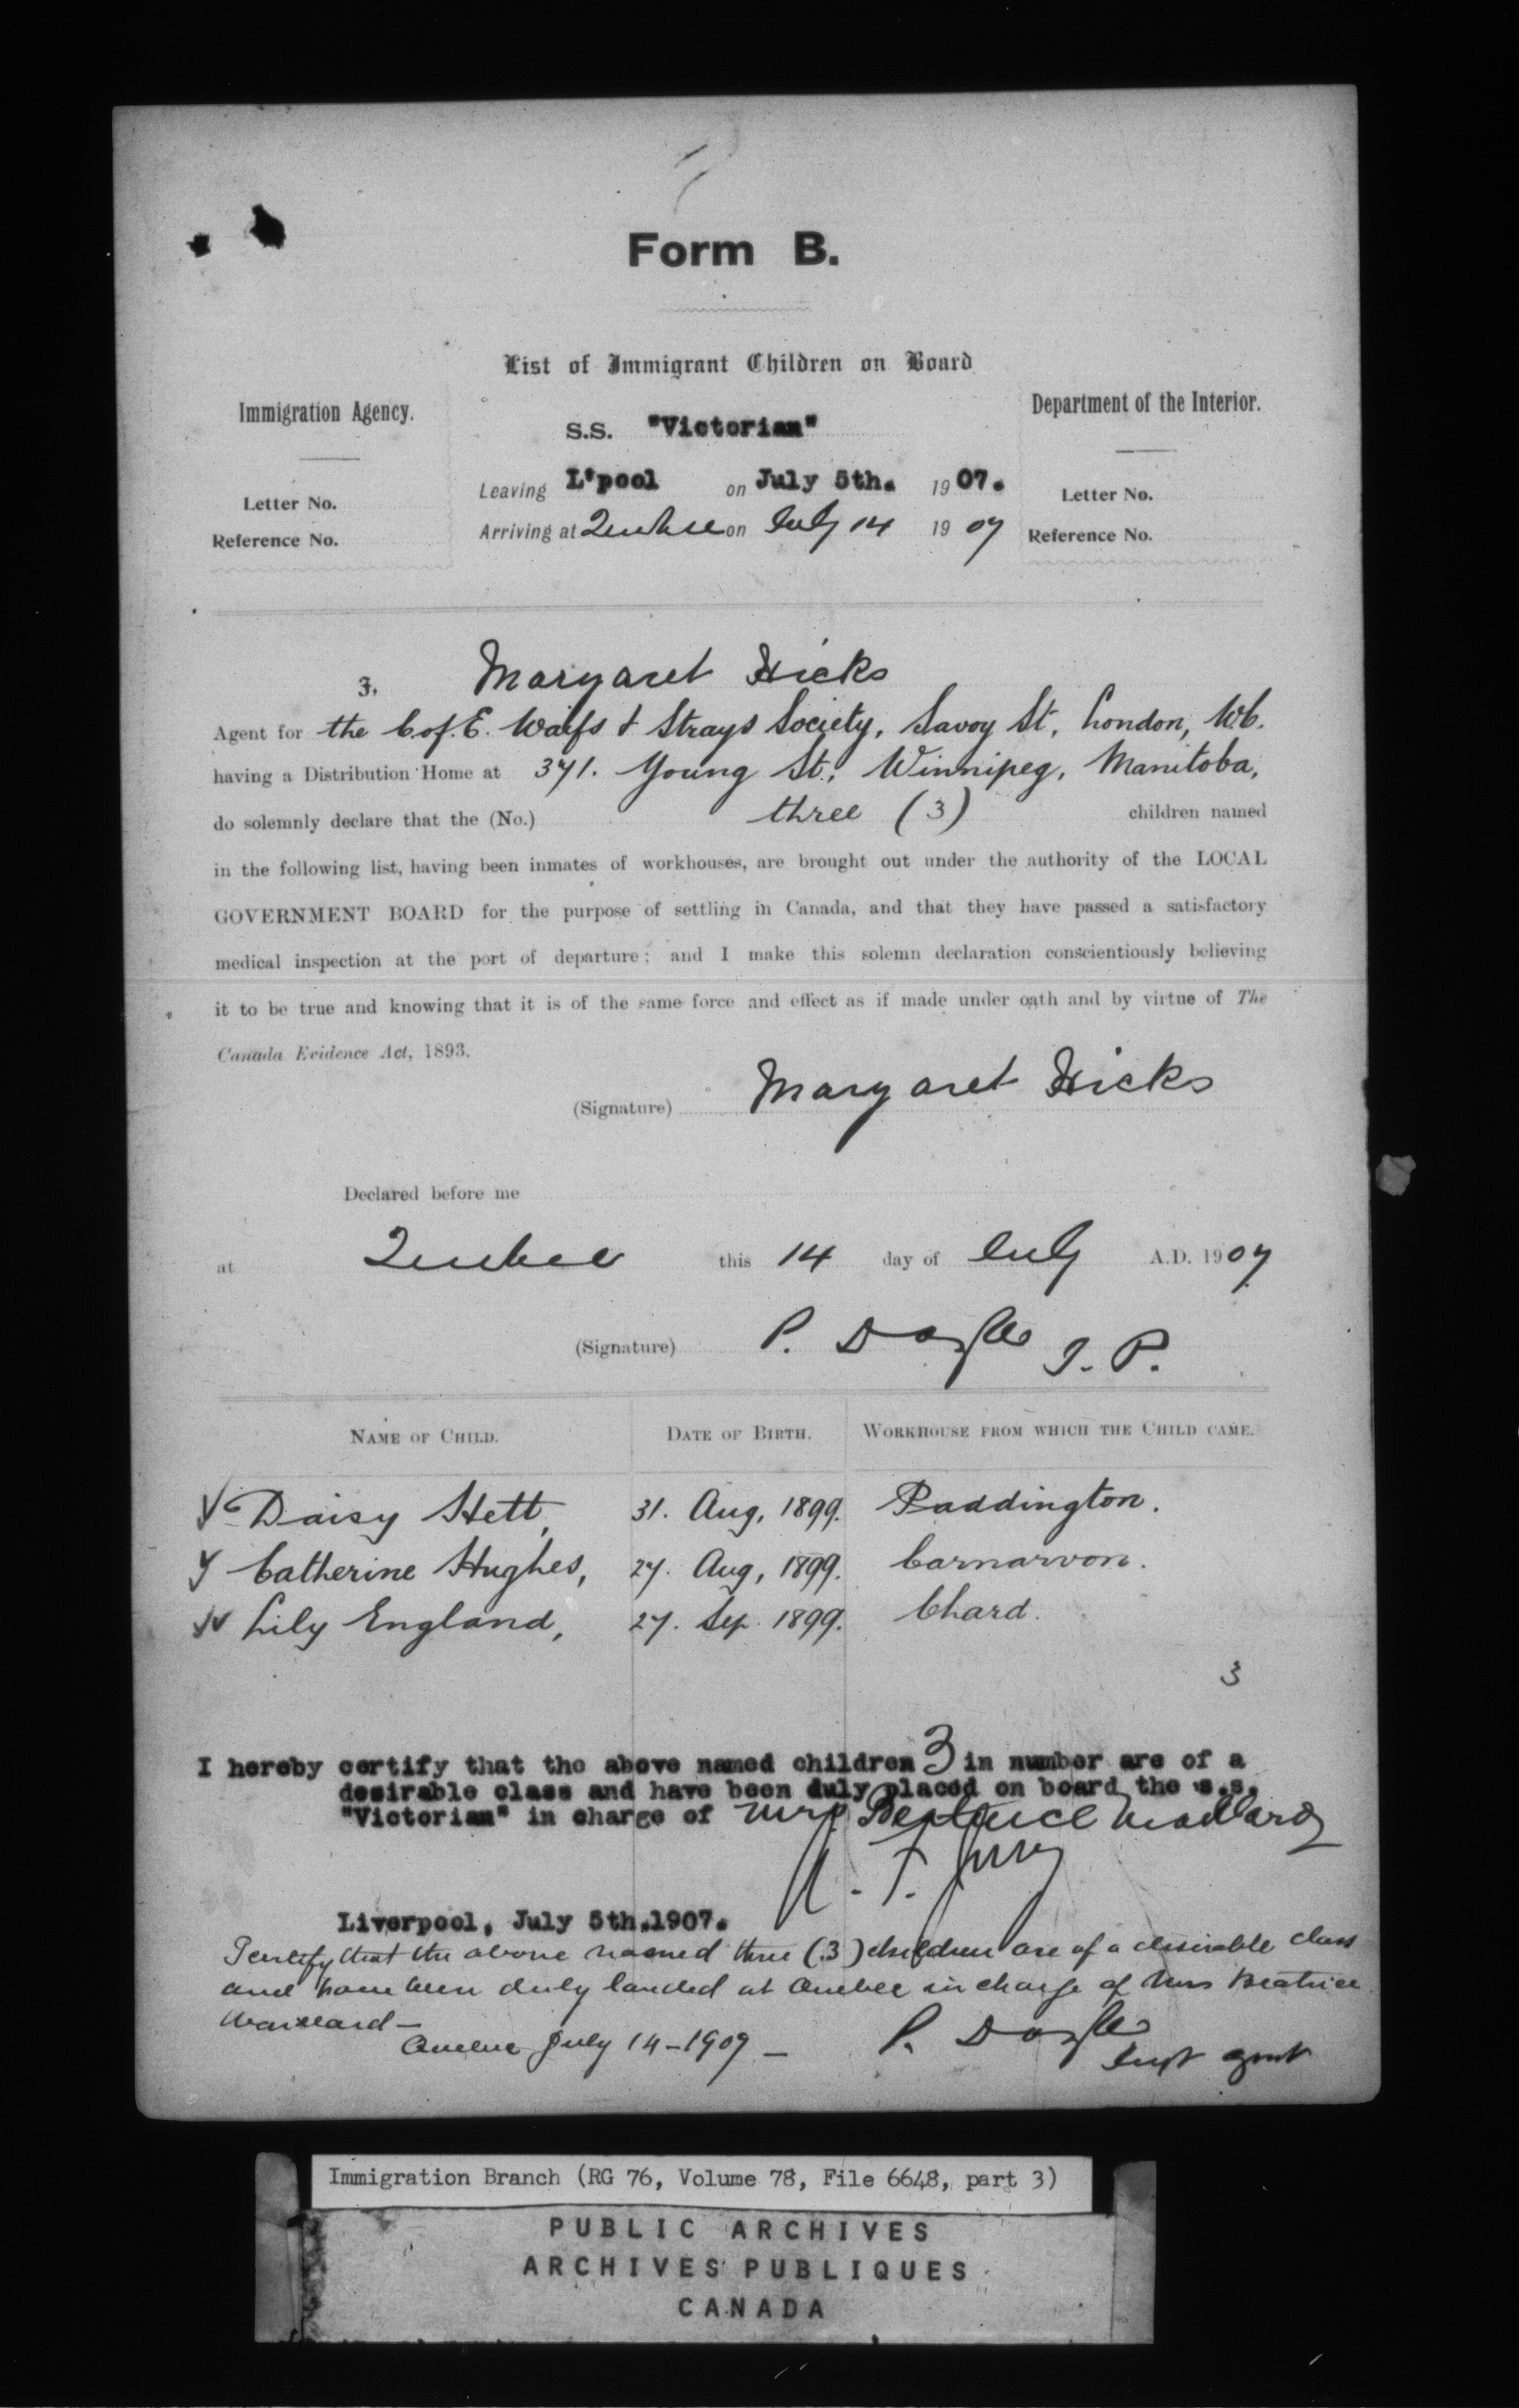 Form B.
List of Immigrant Children on Board
Immigration Agency.
Department of the Interior.
S.S. "Victorian"
Letter No.
Leaving L'pool on July 5th. 1907.
Letter No.
Reference No.
Arriving at Quebec on July 14 1907
Reference No.
3. Margaret Hicks
Agent for the C. of. E. Waifs & Strays Society, Savoy St, London, W.C.
having a Distribution Home at 371. Young St., Winnipeg, Manitoba,
do solemnly declare that the (No.) three (3) children named
in the following list, having been inmates of workhouses, are brought out under the authority of the LOCAL
GOVERNMENT BOARD for the purpose of settling in Canada, and that they have passed a satisfactory
medical inspection at the port of departure; and I make this solemn declaration conscientiously believing
it to be true and knowing that it is of the same force and effect as if made under oath and by virtue of The
Canada Evidence Act, 1893.
(Signature) Margaret Hicks
Declared before me
at Quebec this 14 day of July A.D. 1907
(Signature) P. Doyle J. P.
NAME OF CHILD. DATE OF BIRTH. WORKHOUSE FROM WHICH THE CHILD CAME.
Daisy Stett, 31. Aug, 1899. Paddington.
Catherine Hughes, 27. Aug, 1899. Carnarvon.
Lily England, 27. Sep. 1899. Chard.
3
I hereby certify that the above named children 3 in number are of a
desirable class and have been duly placed on board the s.s.
"Victorian" in charge of Mrs Beatrice
Liverpool, July 5th, 1907.
I certify that the above named three (3) children are of a desirable class
and have been duly landed at Quebec in charge of Mrs Beatrice
Quebec July 14-1907 - P. Doyle
agent
Immigration Branch (RG 76, Volume 78, File 6648, part 3)
PUBLIC ARCHIVES
ARCHIVES PUBLIQUES
CANADA